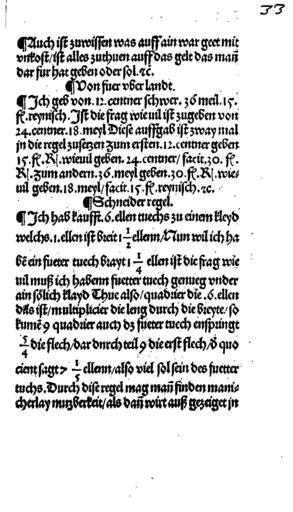 33
¶Auch ist zuwissen was auff ain war geet mit
vnkost/ist alles zuthuen auff das gelt das man̄
dar fur hat geben oder sol.⁊c.
¶Von fuer vber landt.
¶Ich geb von.12.centner schwer.36 meil.15.
fl.reynisch.Ist die frag wie uil ist zugeben von
24.centner.18.meyl Diese auffgab ist zway mal
in die regel zusetzen Zum ersten.12.centner geben
15.fl.R.wieuil geben.24.centner/facit.30.fl.
R.Zum andern.36.meyl geben.30.fl.R.wie-
uil geben.18.meyl/facit.15.fl.reynisch.⁊c.
¶Schneider regel.
¶Ich hab kaufft.6.ellen tuechs zu einem kleyd
welchs.1.ellen ist breit 1 1/2 ellenn/Nun wil ich ha
bē ein fueter tuech brayt 1 1/4 ellen ist die frag wie
uil muß ich habenn fuetter tuech genueg vnder
ain sölich klayd Thue also/quadrier die.6.ellen
das ist/multiplicier die leng durch die breyte/so
kumē 9 quadrier auch dz fueter tuech entspringt
5/4 die flech/dar durch teil 9 die erst flech/d̄ quo
cient sagt 7 1/5 ellenn/also viel sol sein des fuetter
tuchs.Durch dise regel mag man̄ finden mani-
cherlay nutzberkeit/als dan̄ wirt auß gezeiget in